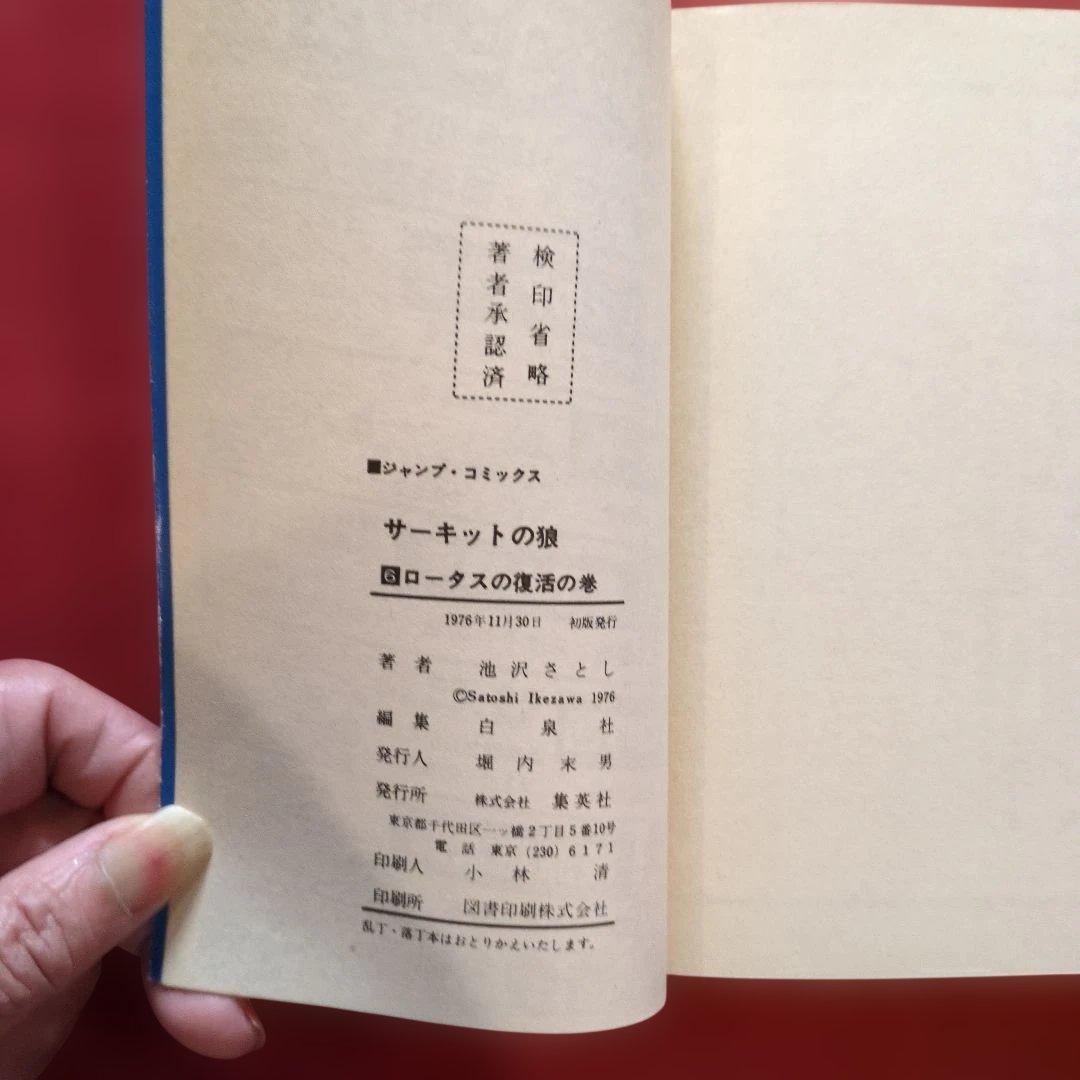 検印省略
著者承認済
■ジャンプ・コミックス
サーキットの狼
6ロータスの復活の巻
1976年11月30日 初版発行
著者 池沢さとし
©Satoshi Ikezawa 1976
編集 白泉社
発行人 堀内末男
発行所 株式会社 集英社
東京都千代田区一ッ橋2丁目5番10号
電話 東京(230)6171
印刷人 小林 清
印刷所 図書印刷株式会社
乱丁・落丁本はおとりかえいたします。